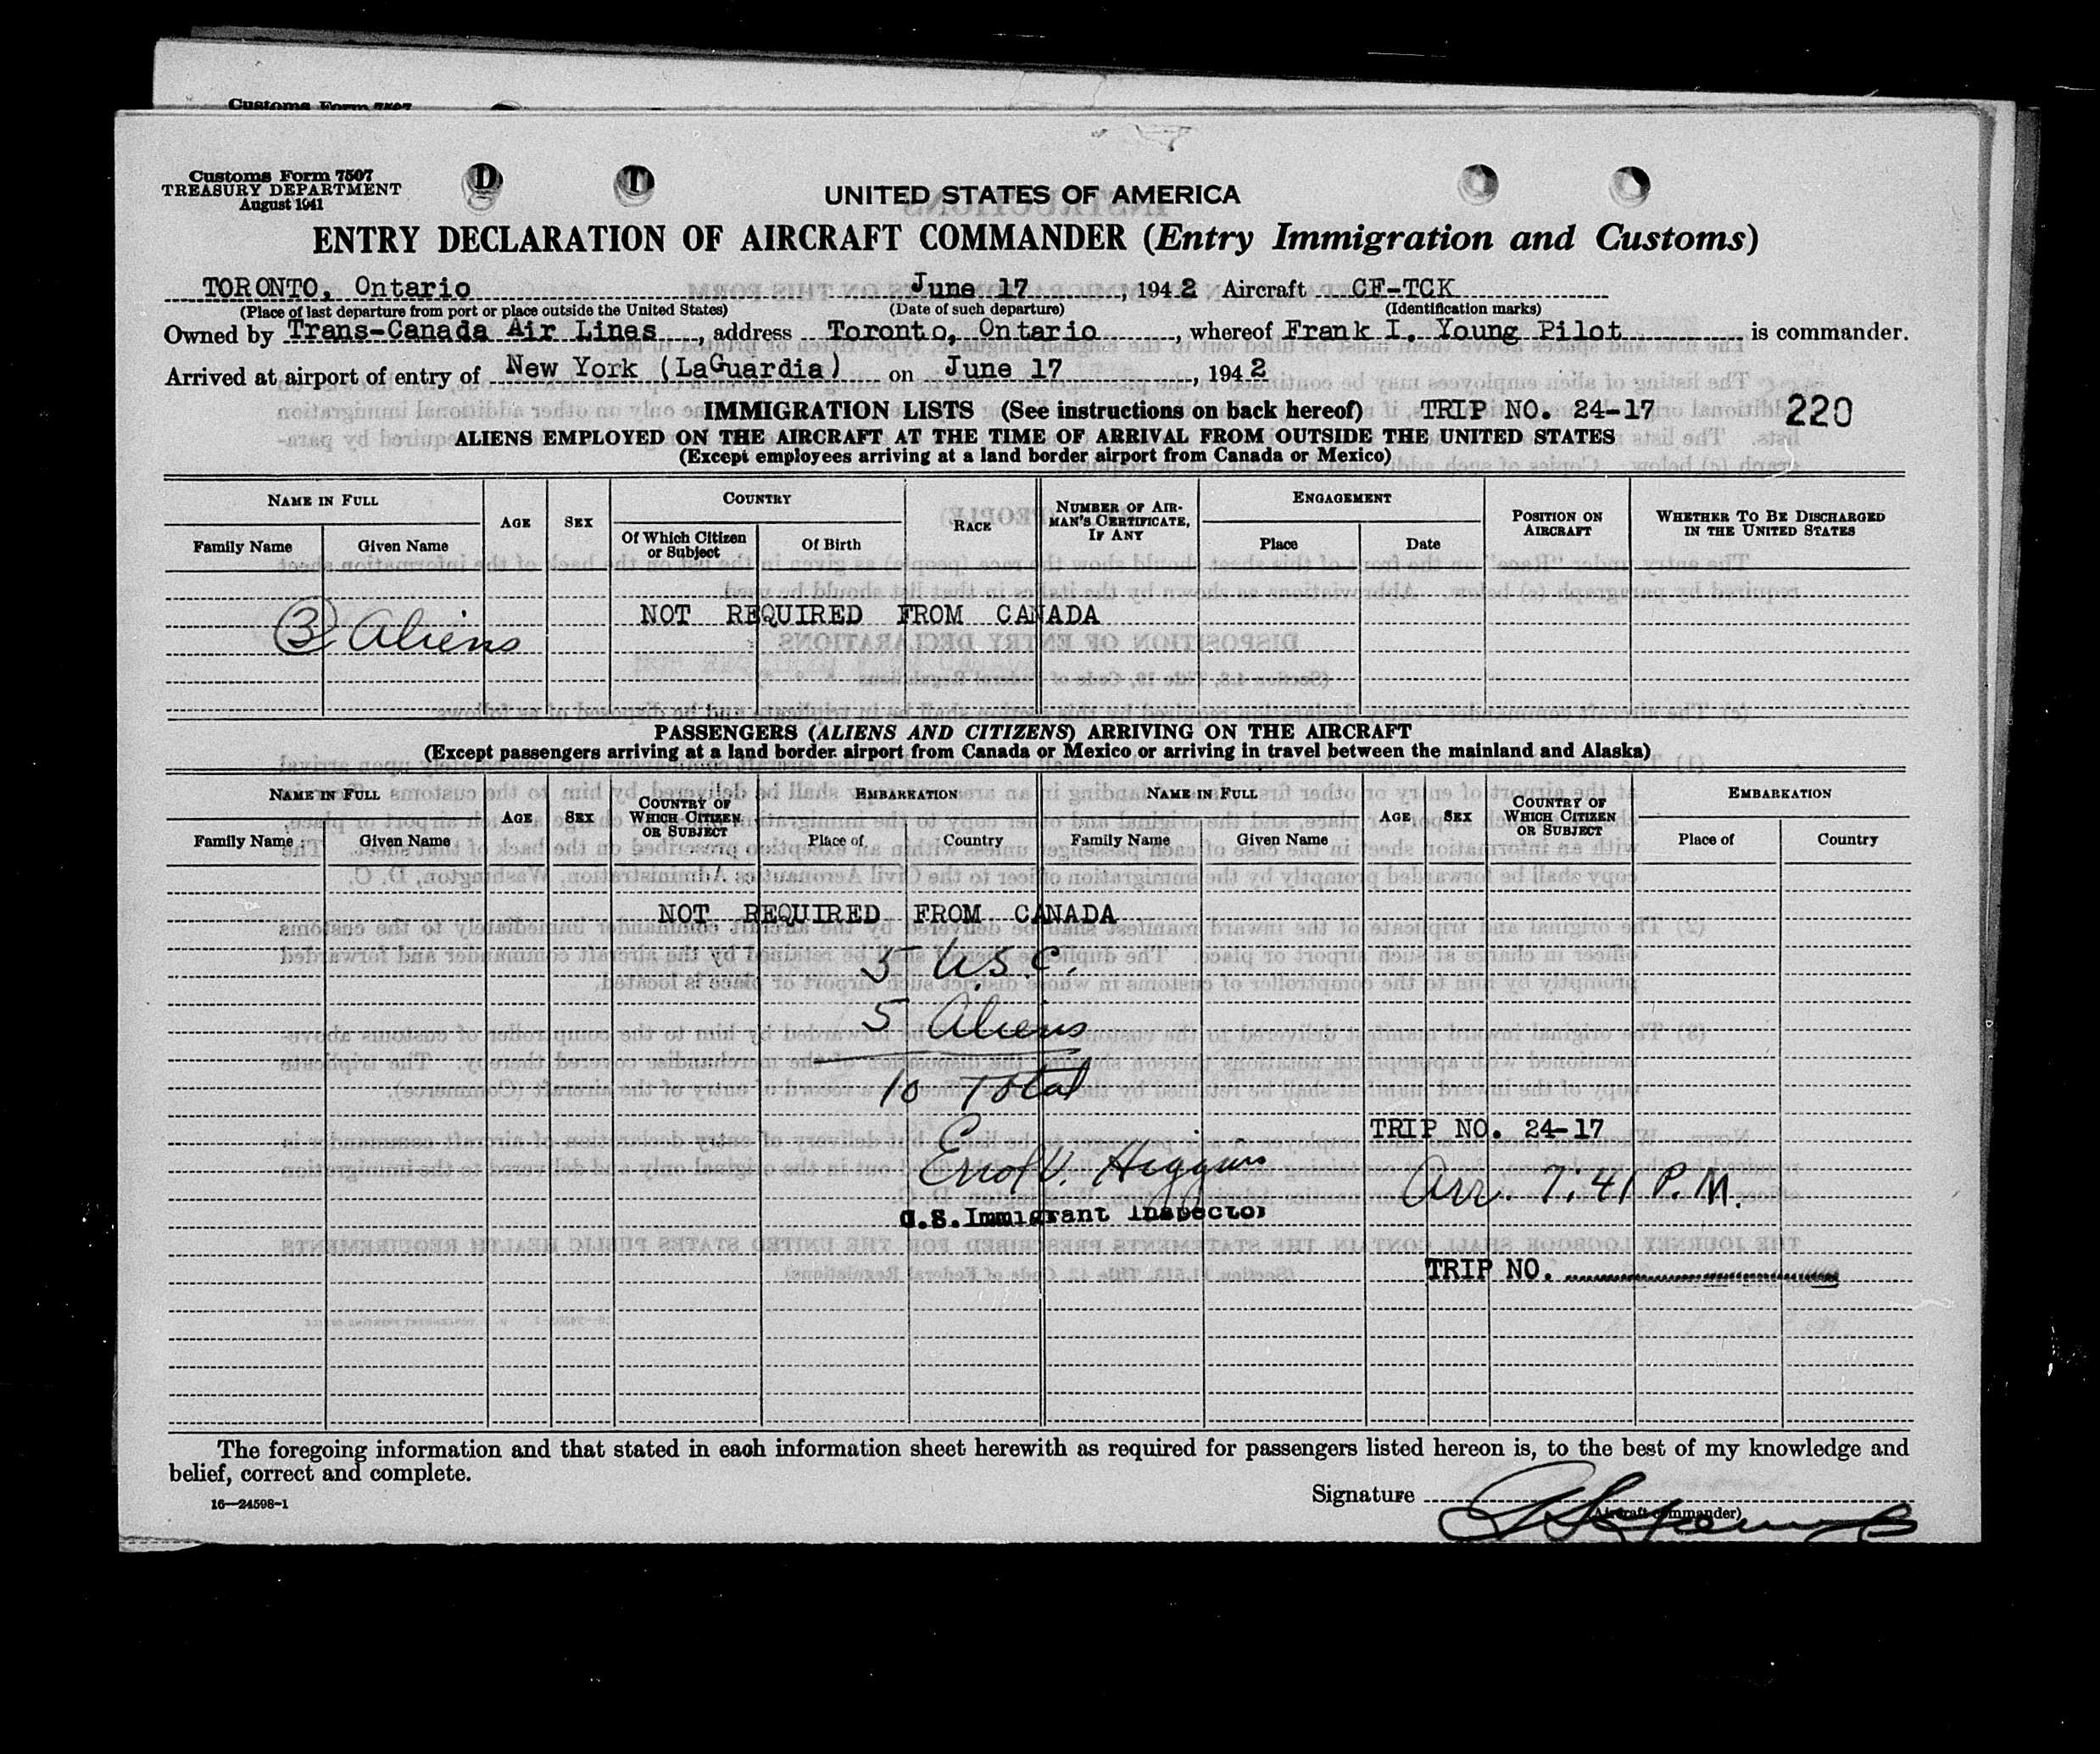 Customs Form 7507
Customs Form 7507
TREASURY DEPARTMENT
August 1941
D T
UNITED STATES OF AMERICA
ENTRY DECLARATION OF AIRCRAFT COMMANDER (Entry Immigration and Customs)
TORONTO, Ontario June 17, 1942 Aircraft CF-TCK
(Place of last departure from port or place outside the United States) (Date of such departure) (Identification marks)
Owned by Trans-Canada Air Lines, address Toronto, Ontario, whereof Frank I. Young Pilot is commander.
Arrived at airport of entry of New York (LaGuardia) on June 17, 1942
IMMIGRATION LISTS (See instructions on back hereof) TRIP NO. 24-17 220
ALIENS EMPLOYED ON THE AIRCRAFT AT THE TIME OF ARRIVAL FROM OUTSIDE THE UNITED STATES
(Except employees arriving at a land border airport from Canada or Mexico)
NAME IN FULL AGE SEX COUNTRY RACE NUMBER OF AIRMAN'S CERTIFICATE, IF ANY ENGAGEMENT POSITION ON AIRCRAFT WHETHER TO BE DISCHARGED IN THE UNITED STATES
Family Name Given Name Of Which Citizen or Subject Of Birth Place Date
NOT REQUIRED FROM CANADA
3 Aliens
PASSENGERS (ALIENS AND CITIZENS) ARRIVING ON THE AIRCRAFT
(Except passengers arriving at a land border airport from Canada or Mexico or arriving in travel between the mainland and Alaska)
NAME IN FULL AGE SEX COUNTRY OF WHICH CITIZEN OR SUBJECT EMBARKATION NAME IN FULL AGE SEX COUNTRY OF WHICH CITIZEN OR SUBJECT EMBARKATION
Family Name Given Name Place of Country Family Name Given Name Place of Country
NOT REQUIRED FROM CANADA
5 U.S.C.
5 Aliens
10 Total
TRIP NO. 24-17
Errol V. Higgins
Arr. 7:41 P.M.
U.S. Immigrant Inspector
TRIP NO.
The foregoing information and that stated in each information sheet herewith as required for passengers listed hereon is, to the best of my knowledge and
belief, correct and complete.
Signature
(Aircraft commander)
16—24598-1